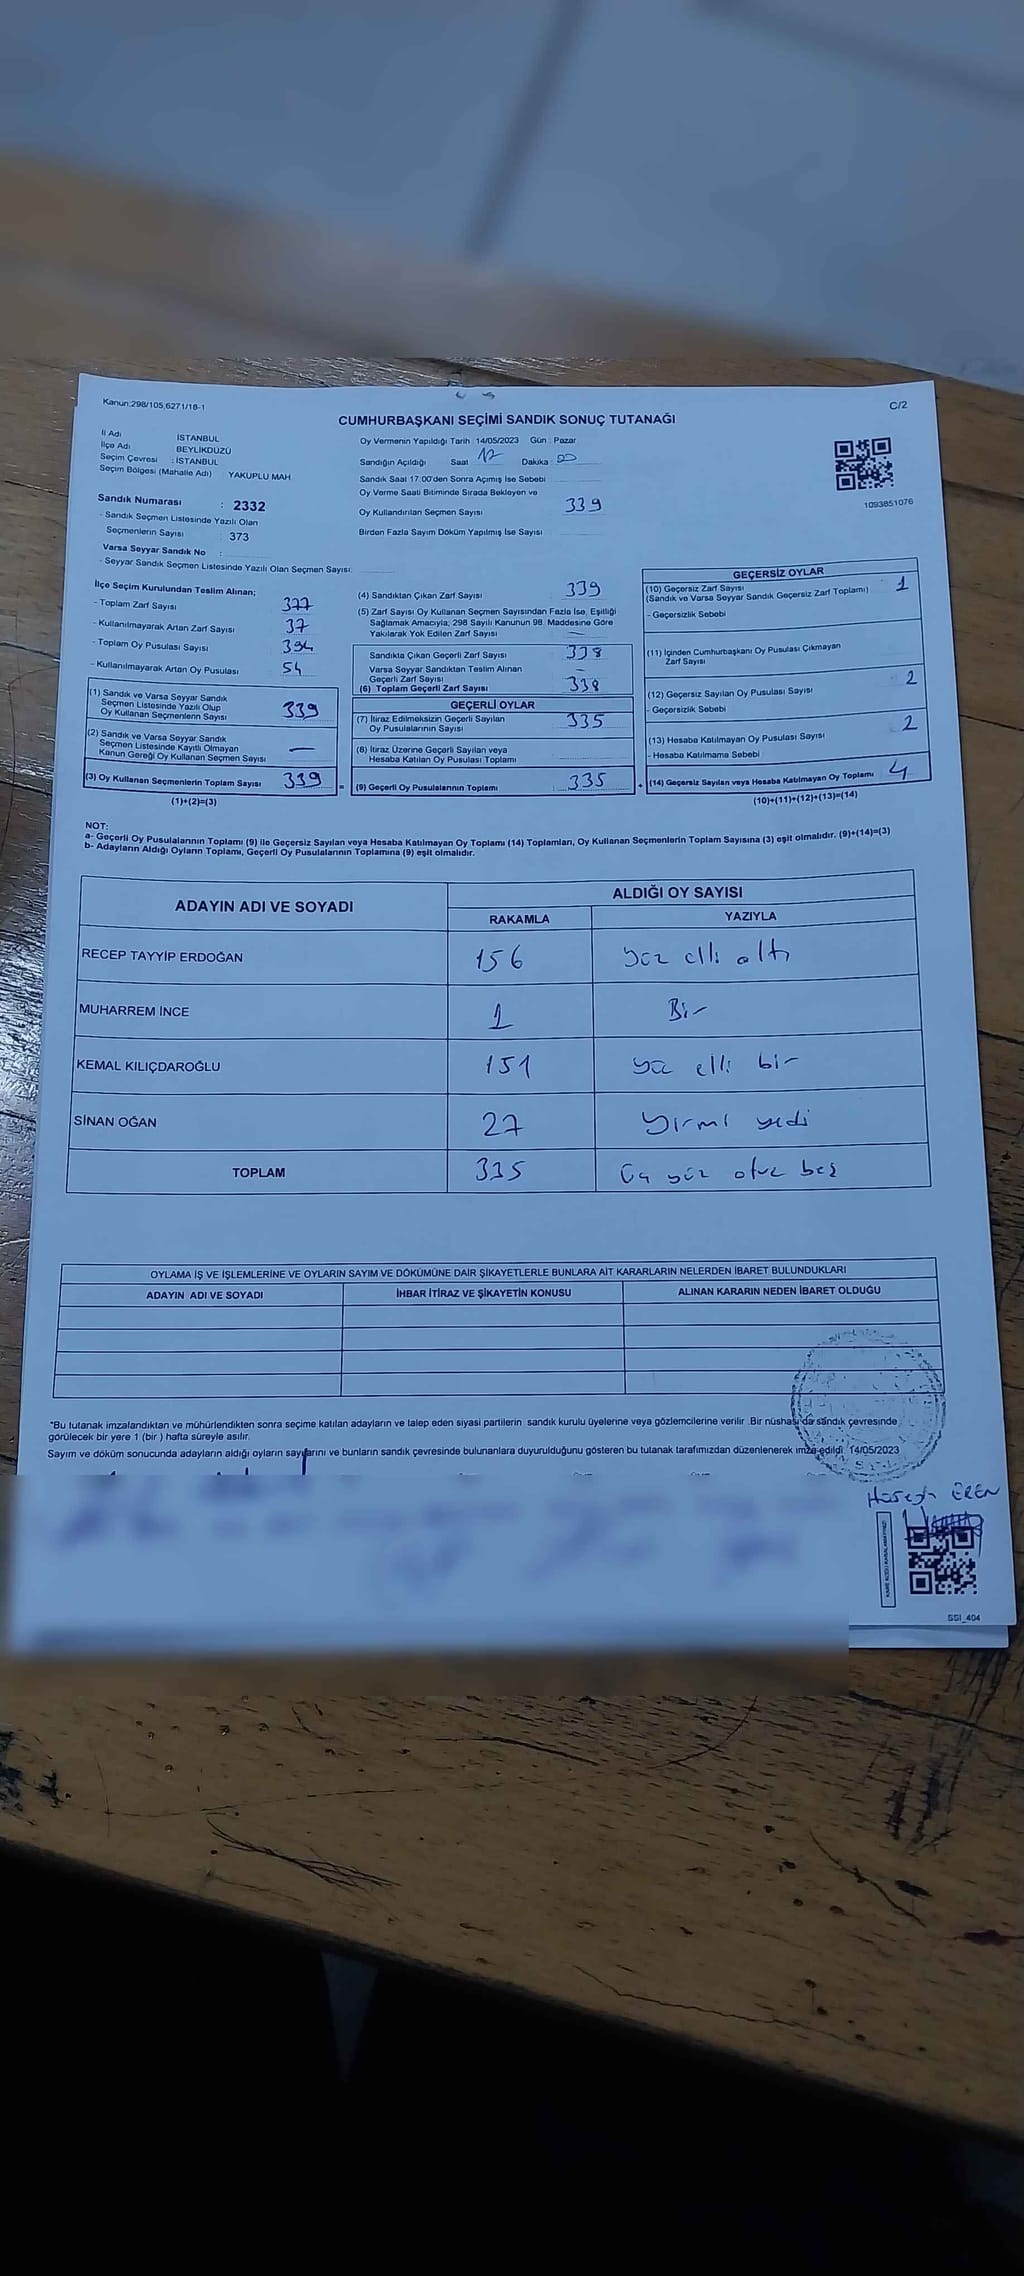 Kanun:298/105,6271/18-1
C/2
CUMHURBAŞKANI SEÇİMİ SANDIK SONUÇ TUTANAĞI
İl Adı İSTANBUL
İlçe Adı BEYLİKDÜZÜ
Seçim Çevresi : İSTANBUL
Seçim Bölgesi (Mahalle Adı) YAKUPLU MAH
Sandık Numarası : 2332
- Sandık Seçmen Listesinde Yazılı Olan
Seçmenlerin Sayısı : 373
Varsa Seyyar Sandık No :
- Seyyar Sandık Seçmen Listesinde Yazılı Olan Seçmen Sayısı:
Oy Vermenin Yapıldığı Tarih 14/05/2023 Gün Pazar
Sandığın Açıldığı Saat 17 Dakika 00
Sandık Saat 17:00'den Sonra Açımış İse Sebebi
Oy Verme Saati Bitiminde Sırada Bekleyen ve
Oy Kullandırılan Seçmen Sayısı 339
Birden Fazla Sayım Döküm Yapılmış İse Sayısı
1093851076
İlçe Seçim Kurulundan Teslim Alınan;
- Toplam Zarf Sayısı 377
- Kullanılmayarak Artan Zarf Sayısı 37
- Toplam Oy Pusulası Sayısı 394
- Kullanılmayarak Artan Oy Pusulası 54
(1) Sandık ve Varsa Seyyar Sandık
Seçmen Listesinde Yazılı Olup
Oy Kullanan Seçmenlerin Sayısı 339
(2) Sandık ve Varsa Seyyar Sandık
Seçmen Listesinde Kayıtlı Olmayan
Kanun Gereği Oy Kullanan Seçmen Sayısı —
(3) Oy Kullanan Seçmenlerin Toplam Sayısı 339 =
(1)+(2)=(3)
(4) Sandıktan Çıkan Zarf Sayısı 339
(5) Zarf Sayısı Oy Kullanan Seçmen Sayısından Fazla İse, Eşitliği
Sağlamak Amacıyla, 298 Sayılı Kanunun 98. Maddesine Göre
Yakılarak Yok Edilen Zarf Sayısı —
Sandıkta Çıkan Geçerli Zarf Sayısı 338
Varsa Seyyar Sandıktan Teslim Alınan
Geçerli Zarf Sayısı —
(6) Toplam Geçerli Zarf Sayısı 338
GEÇERLİ OYLAR
(7) İtiraz Edilmeksizin Geçerli Sayılan
Oy Pusulalarının Sayısı 335
(8) İtiraz Üzerine Geçerli Sayılan veya
Hesaba Katılan Oy Pusulası Toplamı
(9) Geçerli Oy Pusulalarının Toplamı 335 +
GEÇERSİZ OYLAR
(10) Geçersiz Zarf Sayısı 1
(Sandık ve Varsa Seyyar Sandık Geçersiz Zarf Toplamı)
- Geçersizlik Sebebi
(11) İçinden Cumhurbaşkanı Oy Pusulası Çıkmayan
Zarf Sayısı
(12) Geçersiz Sayılan Oy Pusulası Sayısı 2
- Geçersizlik Sebebi
(13) Hesaba Katılmayan Oy Pusulası Sayısı 2
- Hesaba Katılmama Sebebi
(14) Geçersiz Sayılan veya Hesaba Katılmayan Oy Toplamı 4
(10)+(11)+(12)+(13)=(14)
NOT:
a- Geçerli Oy Pusulalarının Toplamı (9) ile Geçersiz Sayılan veya Hesaba Katılmayan Oy Toplamı (14) Toplamları, Oy Kullanan Seçmenlerin Toplam Sayısına (3) eşit olmalıdır. (9)+(14)=(3)
b- Adayların Aldığı Oyların Toplamı, Geçerli Oy Pusulalarının Toplamına (9) eşit olmalıdır.
ADAYIN ADI VE SOYADI ALDIĞI OY SAYISI
RAKAMLA YAZIYLA
RECEP TAYYİP ERDOĞAN 156 yüz elli altı
MUHARREM İNCE 1 Bir
KEMAL KILIÇDAROĞLU 151 yüz elli bir
SİNAN OĞAN 27 yirmi yedi
TOPLAM 335 üç yüz otuz beş
OYLAMA İŞ VE İŞLEMLERİNE VE OYLARIN SAYIM VE DÖKÜMÜNE DAİR ŞİKAYETLERLE BUNLARA AİT KARARLARIN NELERDEN İBARET BULUNDUKLARI
ADAYIN ADI VE SOYADI İHBAR İTİRAZ VE ŞİKAYETİN KONUSU ALINAN KARARIN NEDEN İBARET OLDUĞU
*Bu tutanak imzalandıktan ve mühürlendikten sonra seçime katılan adayların ve talep eden siyasi partilerin sandık kurulu üyelerine veya gözlemcilerine verilir. Bir nüshası da sandık çevresinde
görülecek bir yere 1 (bir ) hafta süreyle asılır.
Sayım ve döküm sonucunda adayların aldığı oyların sayılarını ve bunların sandık çevresinde bulunanlara duyurulduğunu gösteren bu tutanak tarafımızdan düzenlenerek imza edildi 14/05/2023
Hüseyin EREN
SSI_404